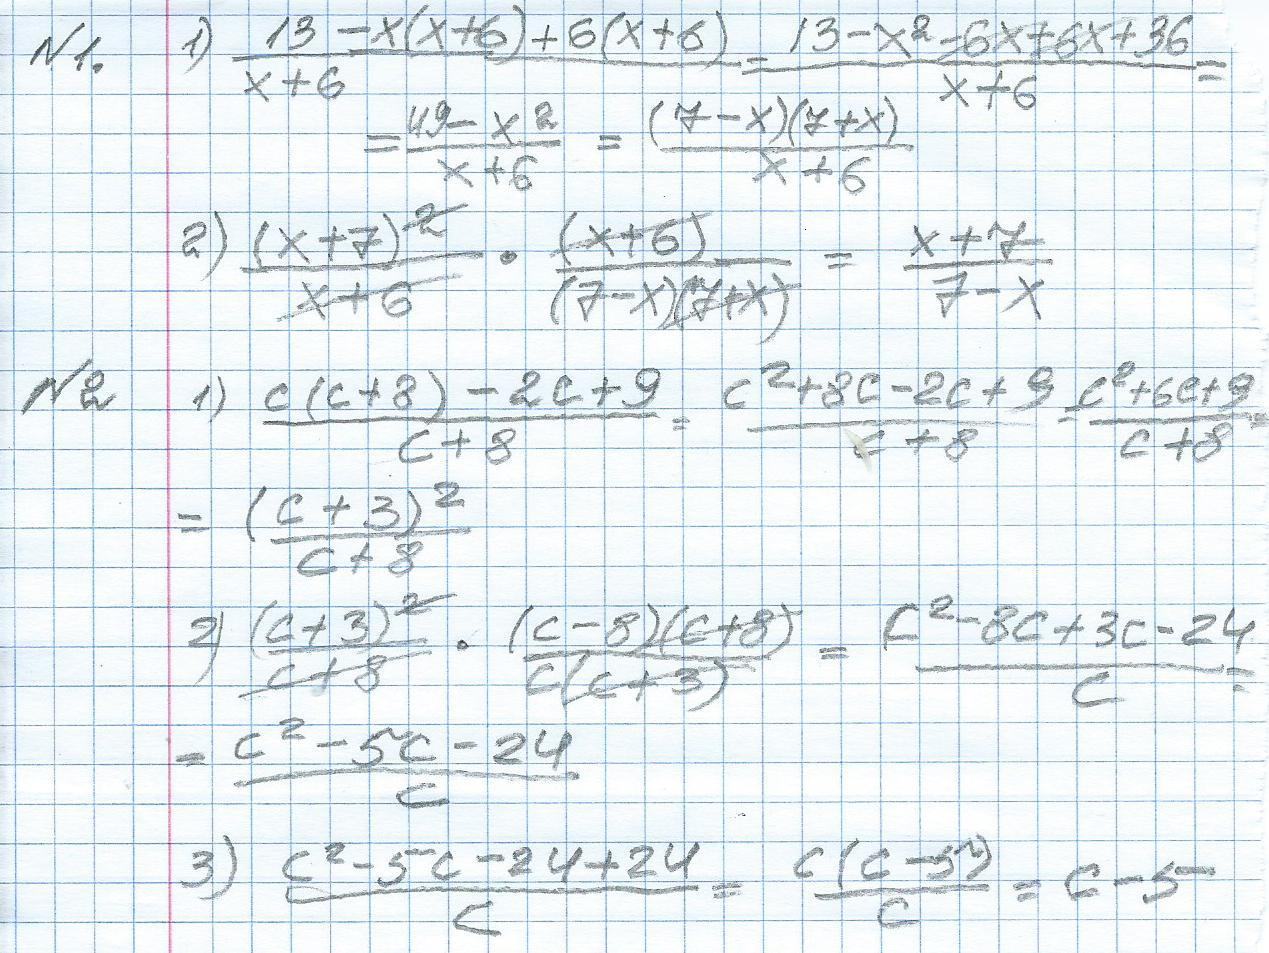 N1. 1) (13 - x(x+6) + 6(x+6))/(x+6) = (13 - x² - 6x + 6x + 36)/(x+6) =
= (49 - x²)/(x+6) = ((7-x)(7+x))/(x+6)
2) (x+7)²/(x+6) · (x+6)/((7-x)(7+x)) = (x+7)/(7-x)
N2 1) (c(c+8) - 2c + 9)/(c+8) = (c² + 8c - 2c + 9)/(c+8) = (c² + 6c + 9)/(c+8) =
= (c+3)²/(c+8)
2) (c+3)²/(c+8) · ((c-8)(c+8))/(c(c+3)) = (c² - 8c + 3c - 24)/c =
= (c² - 5c - 24)/c
3) (c² - 5c - 24 + 24)/c = (c(c-5))/c = c - 5